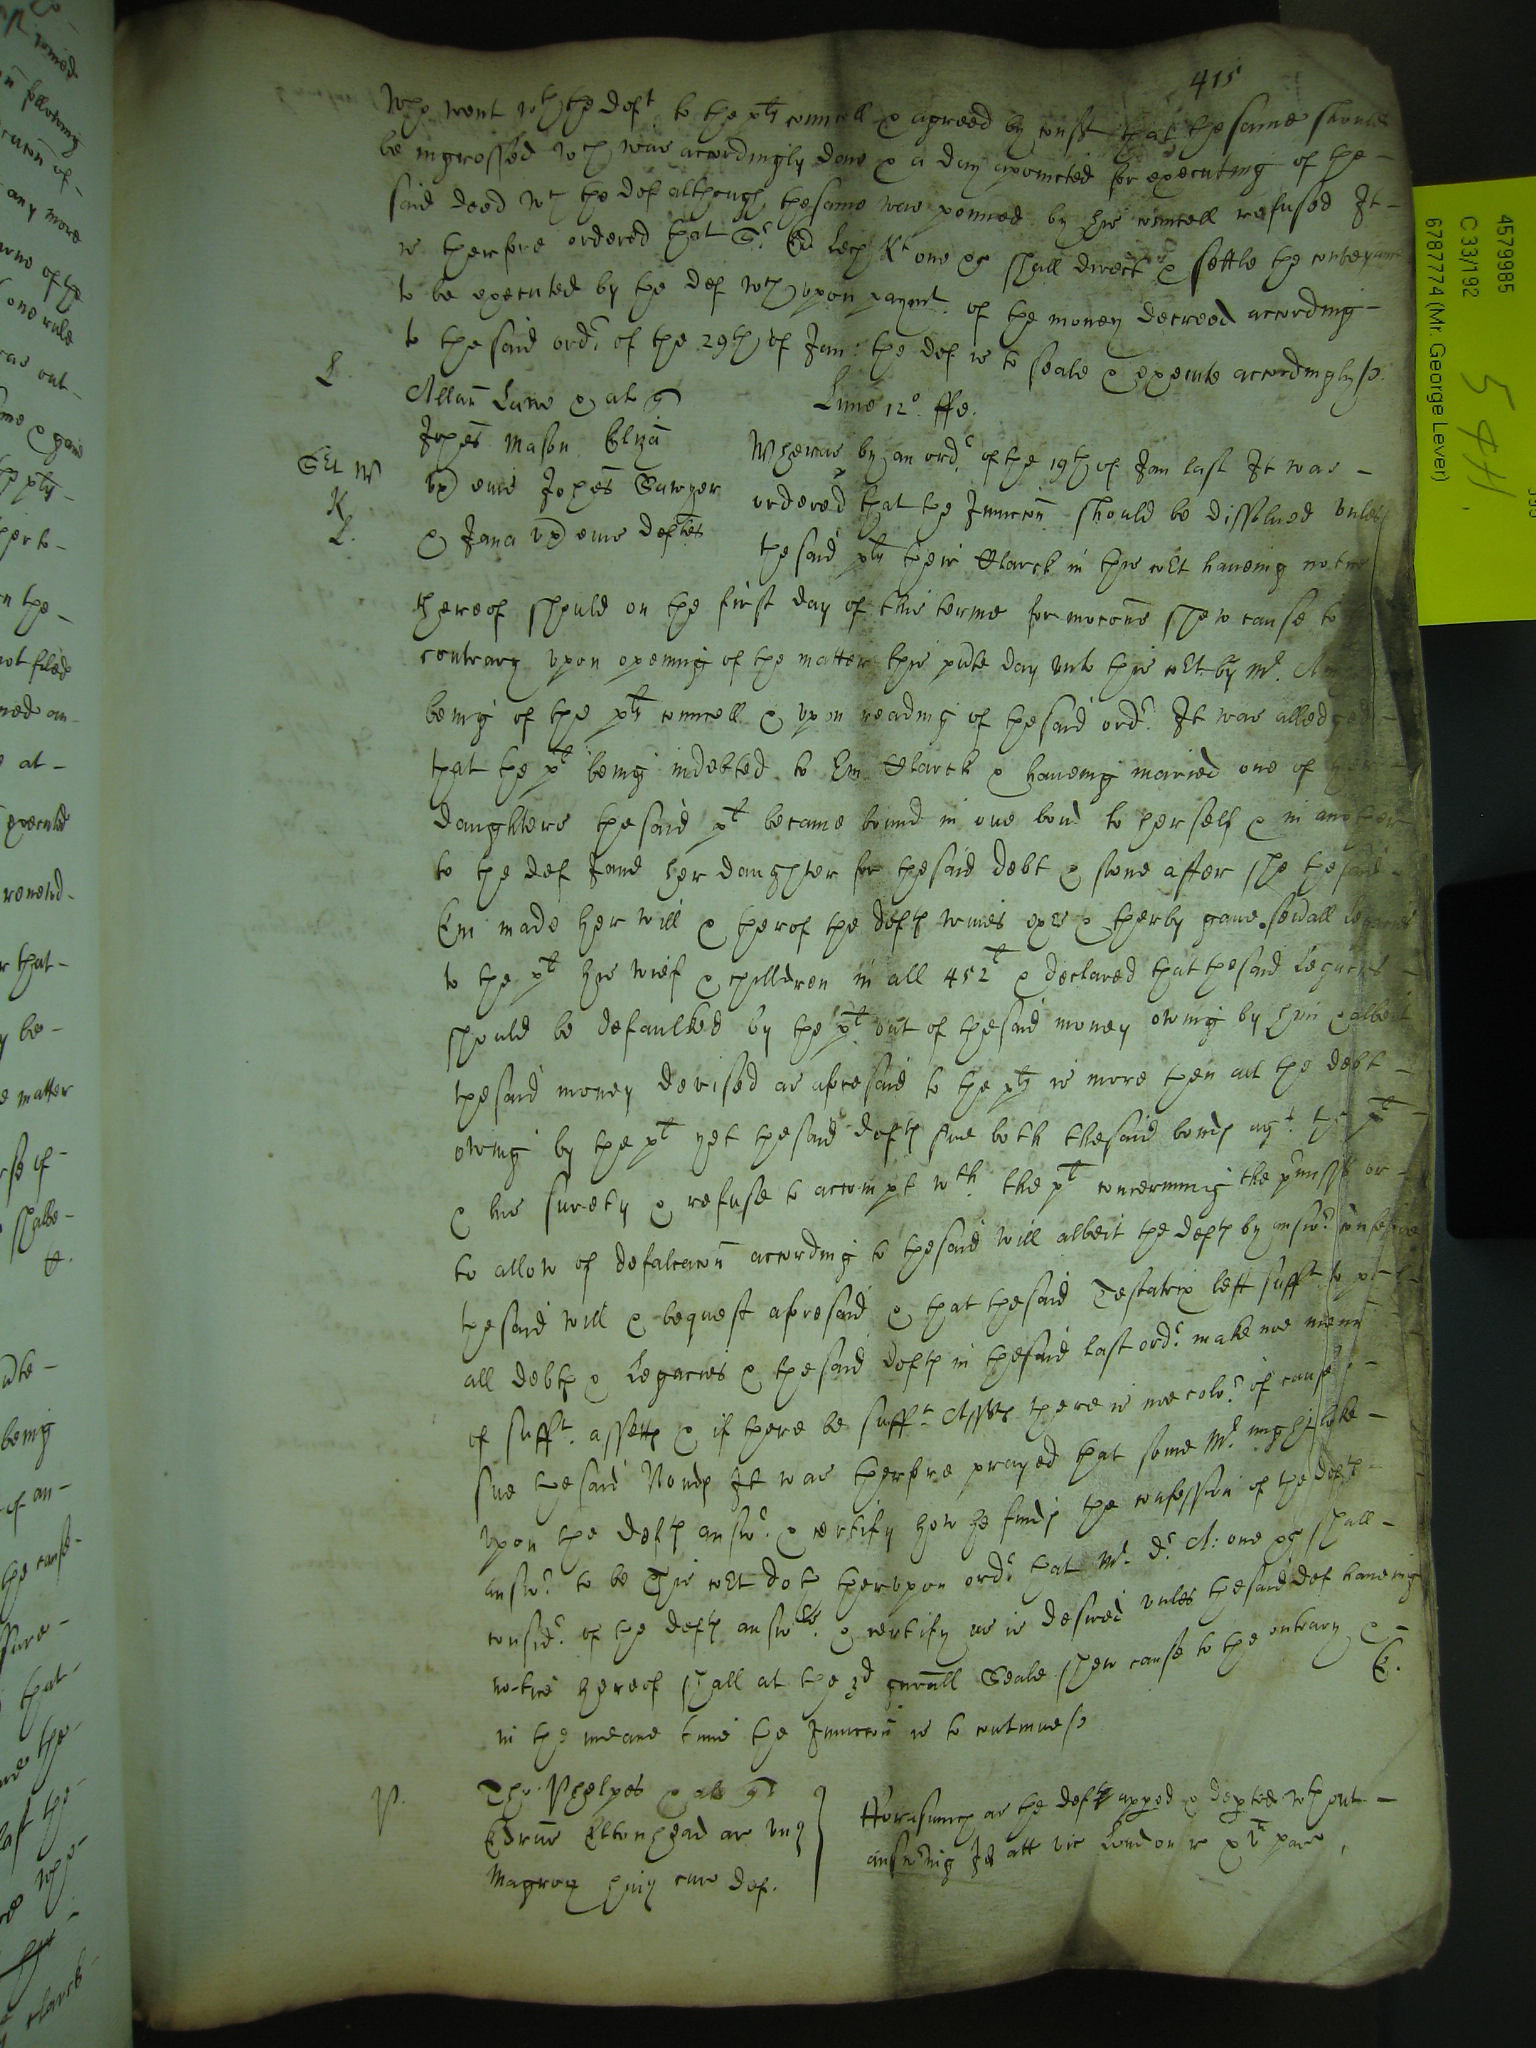 415
who went wth the deft to the plts councell & agreed by consent that the same should
be ingrossed wch was accordingly done & a day apointed for executing of the
said deed wch the def although the same was penned by his councell refused It
is therfore ordered that Sr Ed Lech Kt one &c shall direct & settle the conveyance
to be executed by the def wch upon paymt of the money decreed according
to the said ordr of the 29th of Jan: the def is to seale & execute accordingly
L Allan & al q
Lune 12o ffe.
Johes Mason Eliza
ux eius Johes Sawyer
& Jana ux eius deftes
K
L.
Whereas by an ordr of the 19th of Jan last It was
ordered that the Iniuccon should be dissolved unles
the said plts their Clarck in this cort haveing notice
thereof should on the first day of this terme for mocons shew cause to
contrary upon opening of the matter this pnte day unto this cort by Mr
being of the plts councell & upon reading of the said ordr It was alledged
that the plt being indebted to Em Clarck & haveing maried one of her
daughters the said plt became bound in one bond to herself & in another
to the def Jane her daughter for the said debt & sone after she the said
Em made her will & therof the defts wives exrs & therby gave sevall legacies
to the plt his wief & children in all 452l & declared that the said Legacies
should be defaulked by the plt out of the said money owing by him & albeit
the said money devised as aforesaid to the plts is more then all the debt
owing by the plt yet the said defts sue both the said bonds agt the plt
& his surety & refuse to accompt wth the plt concerning the pmisses or
to allow of defalcacon according to the said will albeit the defts by answr confesse
the said will & bequest aforesaid & that the said Testatrix left sufft to pay
all debts & Legacies & the said defts in the said last ordr make noe mencon
of sufft assetts & if there be sufft Assetts there is noe color of cause to
sue the said Bonds It was therfore prayed that some Mr might looke
upon the defts answr & certify how he finds the confession of the defts
answr to be This cort doth therupon ordr that Mr Dr A: one &c shall
considr of the defts answrs & certify as is desired unles the said def haveing
notice hereof shall at the 3d genall Seale shew cause to the contrary &
in the meane time the Iniuccon is to continue
E.
P. Tho: Phelpes & al q
Edrus Eltonhead ar
def.
Forasmuch as the defts apped & depted wthout
answering Jo att vic London r